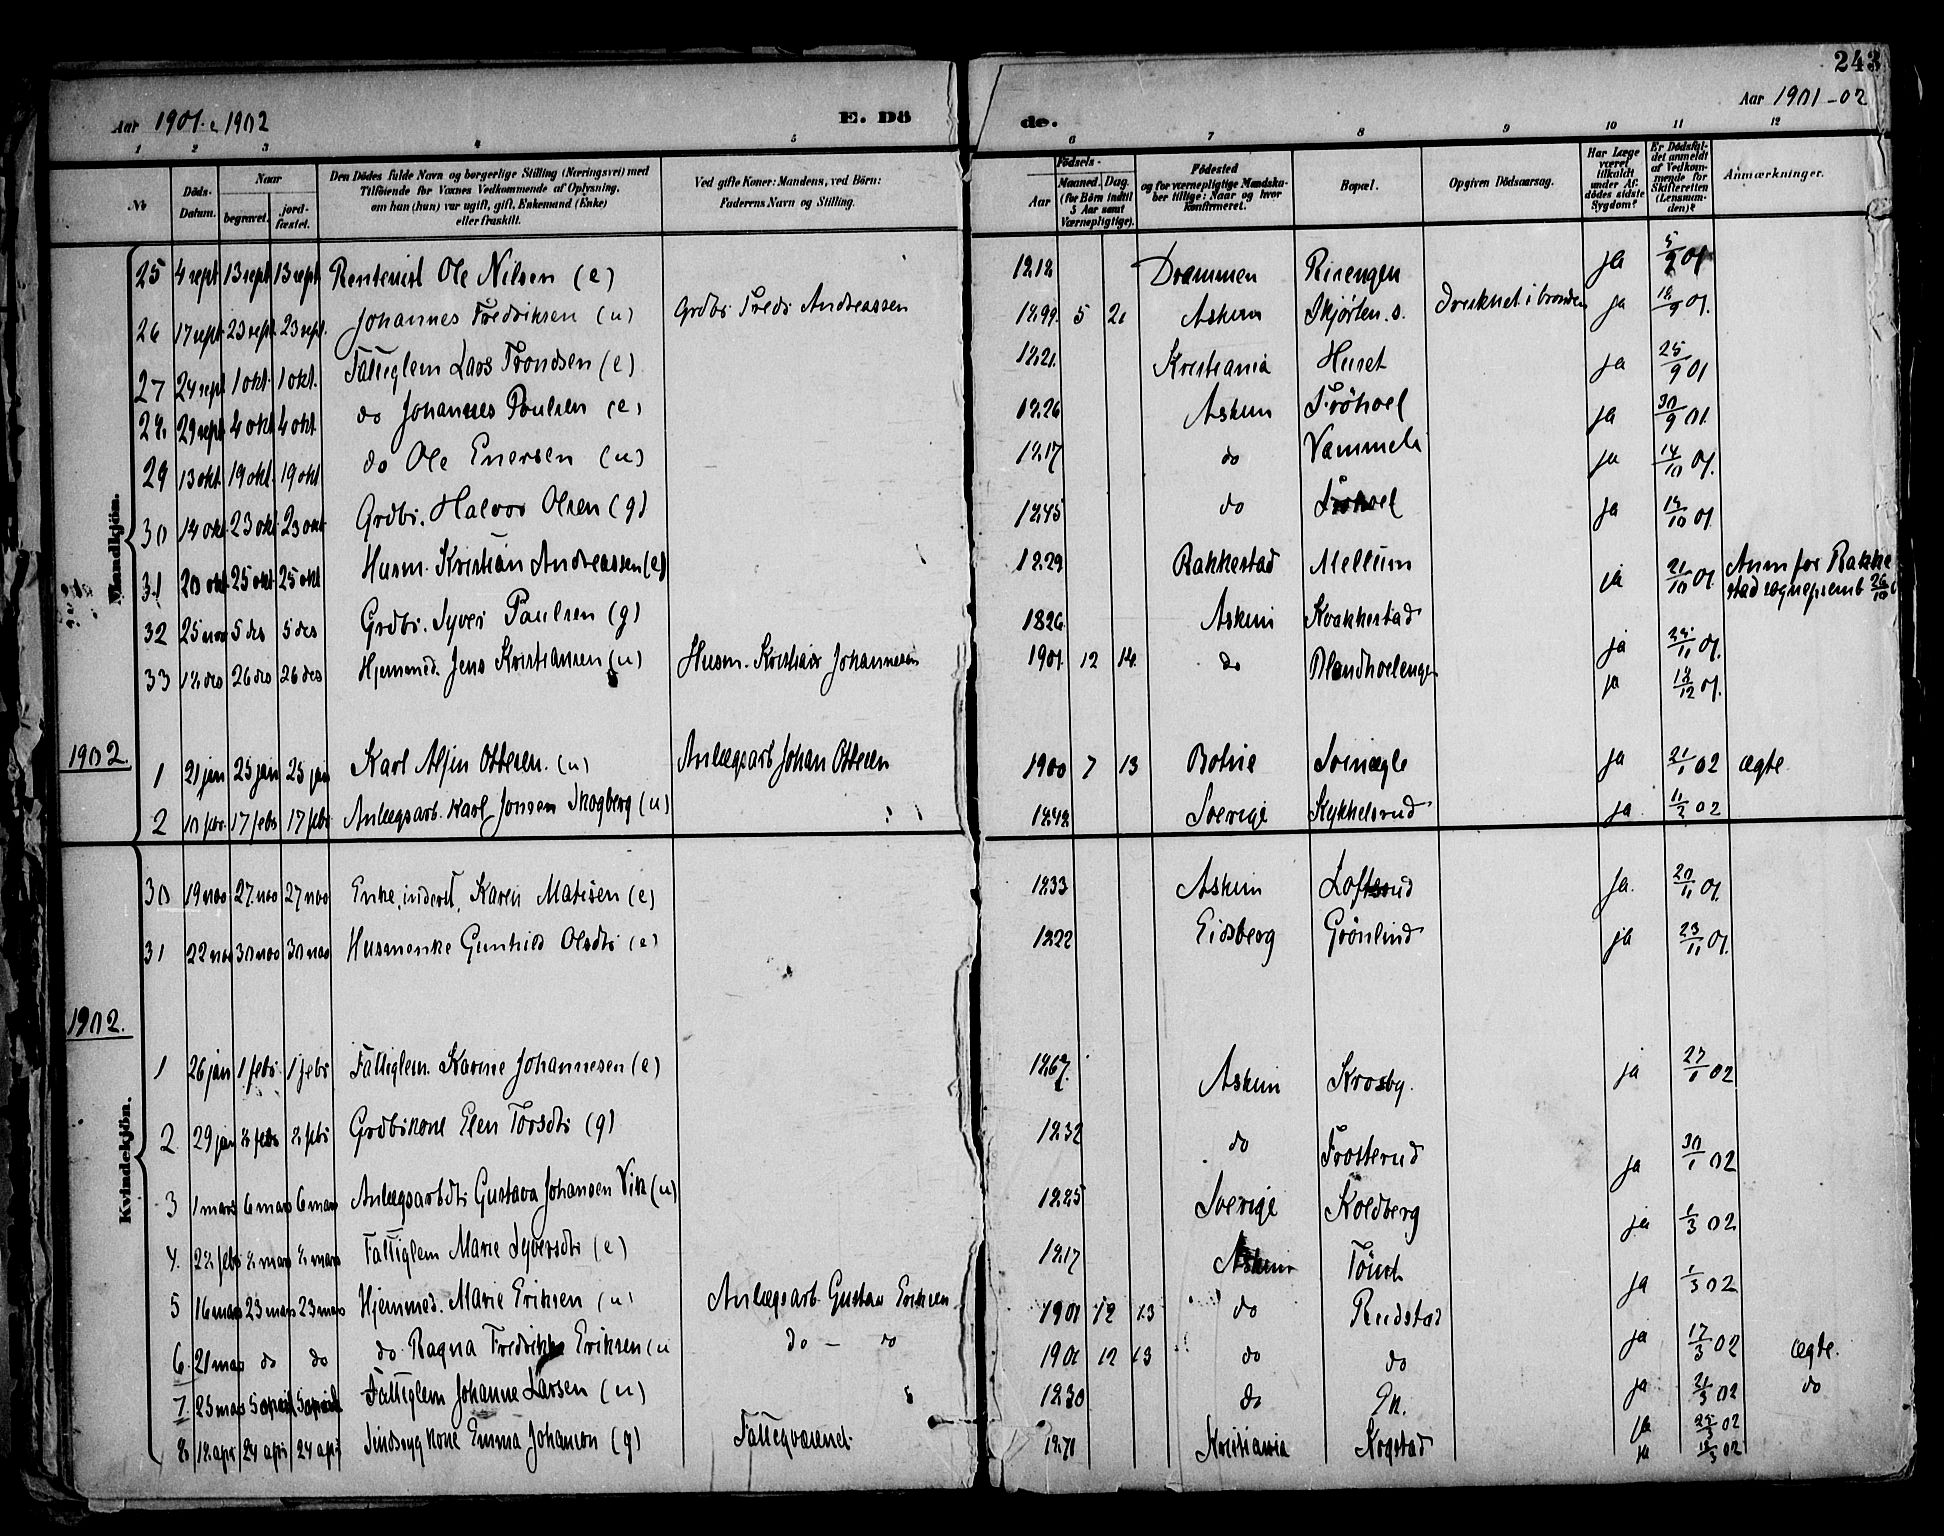 243
Aar 1901 & 1902 E. Dö de. Aar 1901-02
1 2 3 4 5 6 7 8 9 10 11 12
No
Döds-Datum.
Naar
begravet. jord-fæstet.
Den Dödes fulde Navn og borgerlige Stilling (Næringsvei) med
Tilföiende for Voxnes Vedkommende af Oplysning,
om han (hun) var ugift, gift, Enkemand (Enke)
eller fraskilt.
Ved gifte Koner: Mandens, ved Börn:
Faderens Navn og Stilling.
Födsels-
Aar
Maaned. Dag.
(for Börn indtil
5 Aar samt
Værnepligtige).
Födested
og for værnepligtige Mandska-
ber tillige: Naar og hvor
konfirmeret.
Bopæl.
Opgiven Dödsaarsag.
Har Læge
været
tilkaldt
under Af-
dödes sidste
Sygdom?
Er Dödsfal-
det anmeldt
af Vedkom-
mende for
Skifteretten
(Lensman-
den)?
Anmærkninger.
Mandkjön.
25 4 sept 13 sept 13 sept Rentenist Ole Nilsen (e) 1818 Drammen Risengen ja 5/9 01
26 17 sept 23 sept 23 sept. Johannes Fredriksen (u) Grdbr Fredr Andreassen 1899 5 21 Askim Skjørten. s. Drucknet i brønden ja 18/9 01.
27 24 sept 1 okt. 1 okt. Fattiglem Lars Trondsen (e) 1821 Kristiania Huset ja 25/9 01
28. 29 sept 4 okt 4 okt do Johannes Poulsen (e) 1826 Askim Trøhoel ja 30/9 01.
29 13 okt. 19 okt. 19 okt do Ole Enersen (u) 1817 do Vammeli ja 14/10 01.
30 18 okt. 23 okt 23 okt Grdbr. Halvor Olsen (g) 1845 do Trøhoel ja 18/10 01.
31 20 okt 25 okt 25 okt Husm. Kristian Andreassen (e) 1829 Rakkestad Mellum ja 21/10 01 Anm for Rakke
stad sogneprembt 26/10
32 25 nov 5 des 5 des Grdbr. Syver Paulsen (g) 1826 Askim Krakkestad ja 25/11 01.
33 18 des 26 des 26 des Hjemmed. Jens Kristiansen (u) Husm. Kristian Johannesen 1901. 12 14 do Blandhoelengen ja 18/12 01.
1902.
1 21 jan 25 jan 25 jan Karl Alfin Ottesen. (u) Anlægsarb Johan Ottesen 1900 7 13 Botne Svinægle ja 21/1 02 ægte.
2 10 febr. 17 febr 17 febr Anlægsarb. Karl Jonsen Skogberg (u) 1842 Sverige Kykkelsrud ja. 11/2 02
Kvindekjön.
30 19 nov 27. nov 27 nov Enke, inderst, Karen Matisen (e) 1833 Askim Loftsrud ja. 20/11 01.
31 22 nov 30 nov 30 nov Husmenke Gunhild Olsdtr (e) 1822 Eidsberg Grønlund ja 23/11 01.
1902.
1 26 jan 1 febr. 1 febr Fattiglem. Karine Johannesen (e) 1867. Askim Krosby. ja 27/1 02
2 29 jan 8 febr 8 febr Grdbrkone Elen Torsdtr (g) 1832 do Frosterud ja 30/1 02
3 1 mars 6 mars 6 mars Anlægsarbdtr Gustava Johansen Vik (u) 1885 Sverige Koldberg ja 1/3 02
4. 22 febr 8 mars 8 mars Fattiglem Marie Syversdtr (e) 1817 Askim Tømt ja 1/3 02
5 16 mars 23 mars 23 mars Hjemmed. Marie Eriksen (u) Anlægsarb. Gustav Eriksen 1901 12 13 do Rudstad ja 17/3 02 ægte.
6. 21 mars do do do Ragna Fredrikke Eriksen (u) do - do 1901 12 13 do do ja 21/3 02 do
7. 25 mars 5 april 5 april Fattiglem Johanne Larsen (u) 1830 do Pn. ja 25/3 02
8 18 apr 24 apr 24 apr Sindssyg kone Emma Johansen (g) Fattigvæsenet. 1871 Kristiania Kogstad ja 18/3 02